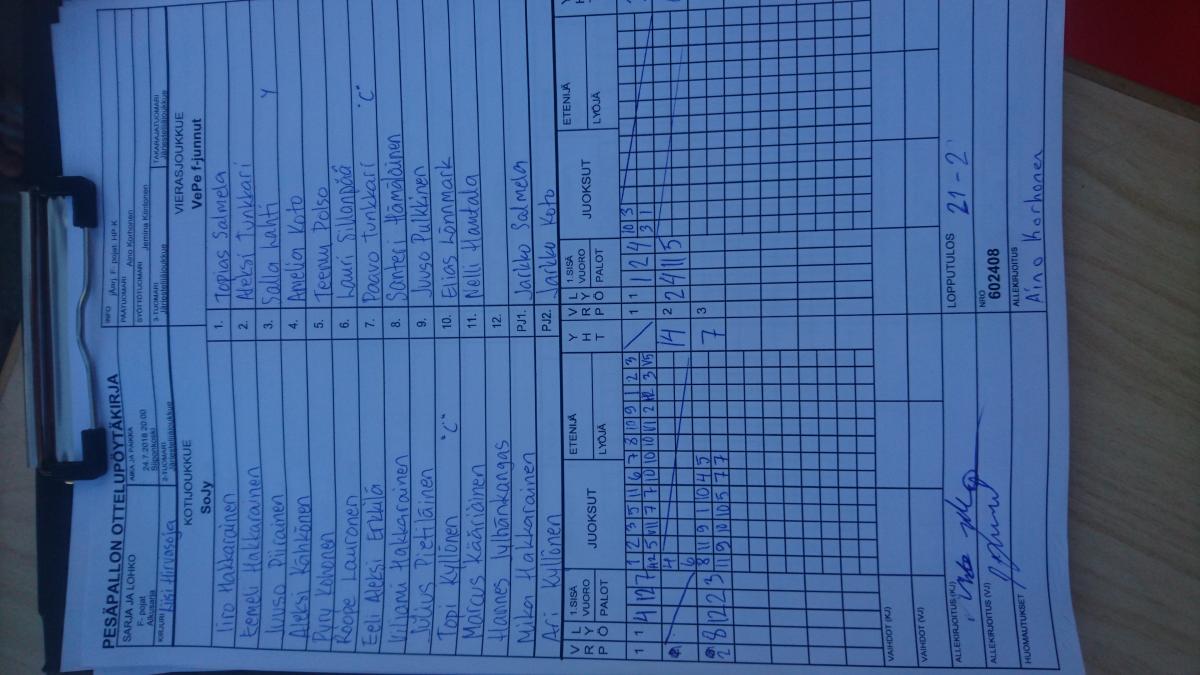 PESÄPALLON OTTELUPÖYTÄKIRJA
SARJA JA LOHKO
F- pojat
Alkusarja
AIKA JA PAIKKA
24.7.2018 20:00
Siiponkoski
INFO
PÄÄTUOMARI Aino Korhonen
SYÖTTÖTUOMARI
KIRJURI Elisi Hirvasoja
2-TUOMARI
Järjestelijäjoukkue
3-TUOMARI
Järjestelijäjoukkue
TAKARAJATUOMARI
Järjestelijäjoukkue
KOTIJOUKKUE
SoJy
VIERASJOUKKUE
VePe f-junnut
Iiro Hakkarainen 1. Topias Salmela
Eemeli Hakkarainen 2. Aleksi Tunkkari
Juuso Piirainen 3. Salla Lahti Y
Aleksi Kähkönen 4. Amelia Koto
Pyry Kohonen 5. Teemu Polso
Roope Lauronen 6. Lauri Sillanpää
Eeli Aleksi Erkkilä 7. Paavo Tunkkari "C"
Viljami Hakkarainen 8. Santeri Hämäläinen
Julius Pietiläinen 9. Juuso Pulkkinen
Topi Kyllönen "C" 10. Elias Lönnmark
Marcus Kääriäinen 11. Nelli Hautala
Hannes Lyhtinkangas 12.
Mika Hakkarainen PJ1. Jarkko Salmela
Ari Kyllönen PJ2. Jarkko Koto
V R P
L Y Ö
1.SISÄ
VUORO
PALOT
JUOKSUT
ETENIJÄ
LYÖJÄ
Y H T
V R P
L Y Ö
1.SISÄ
VUORO
PALOT
JUOKSUT
ETENIJÄ
LYÖJÄ
1 1 4 12 7
1 2 3 5 11 6 7 8 10 9 1 2 3
14
1 1 1 2 4
10 3
3 1
2 2 4 11 5
2 8 12 2 3
8 11 9 1 10 4 5
11 9 10 10 5 7 7
7
3
VAIHDOT (KJ)
VAIHDOT (VJ)
ALLEKIRJOITUS (KJ)
LOPPUTULOS 21-2
ALLEKIRJOITUS (VJ)
NRO
602408
HUOMAUTUKSET
ALLEKIRJOITUS
Aino Korhonen